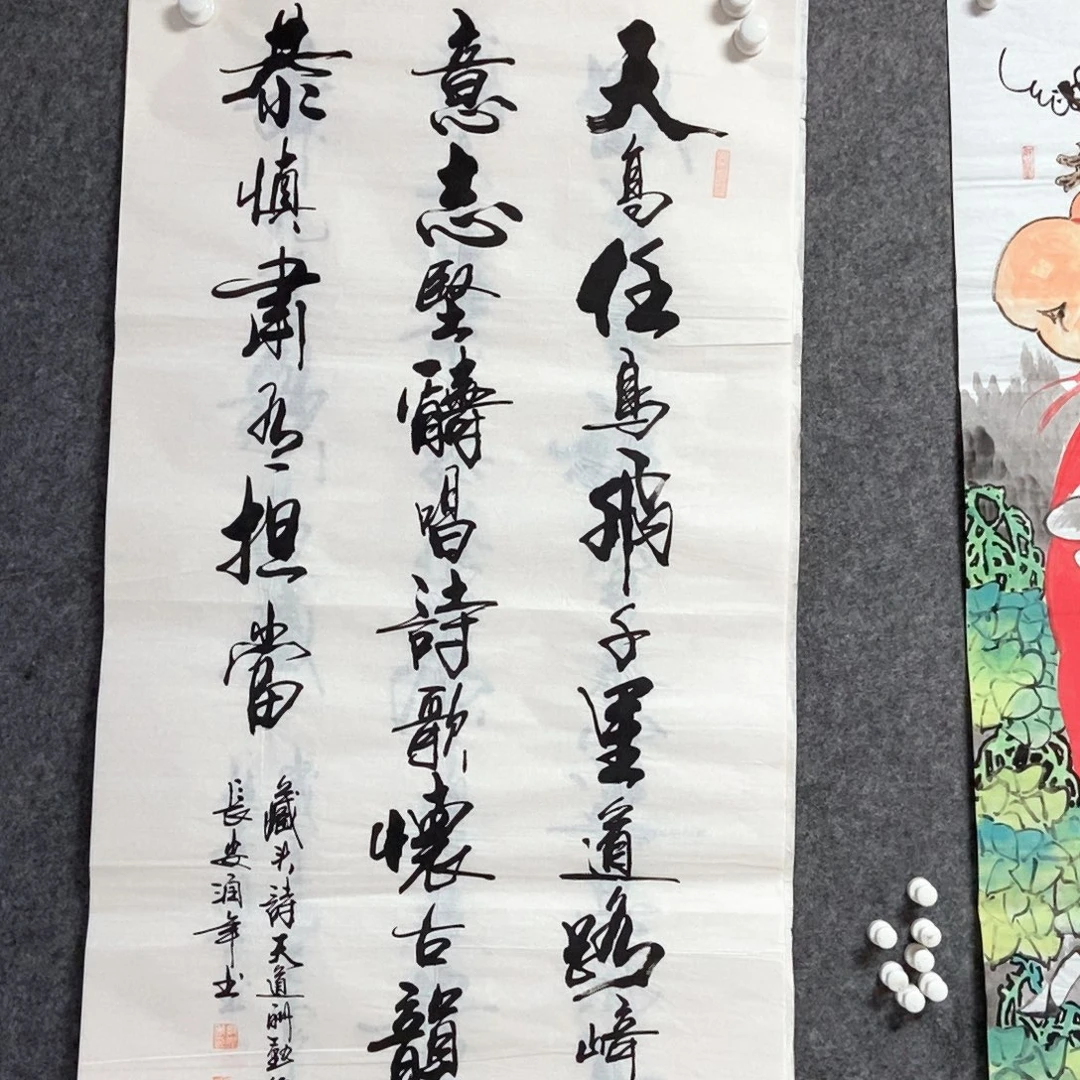 天高任鳥飛千里道路崎
意志堅醻唱詩歌懷古韻
恭慎肅有担當
藏头詩天道酬勤
長安润年书